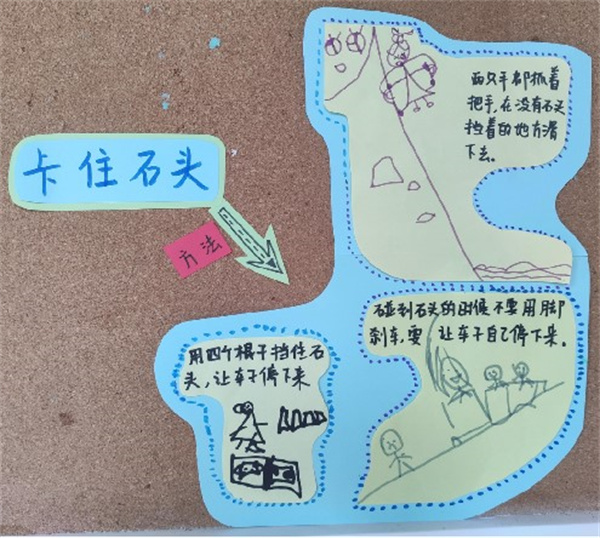 卡住石头
方法
两只手都抓着
把手,在没有石头
挡着的地方滑
下去。
碰到石头的时候不要用脚
刹车,要让车子自己停下来。
用四个棍子挡住石
头,让车子停下来